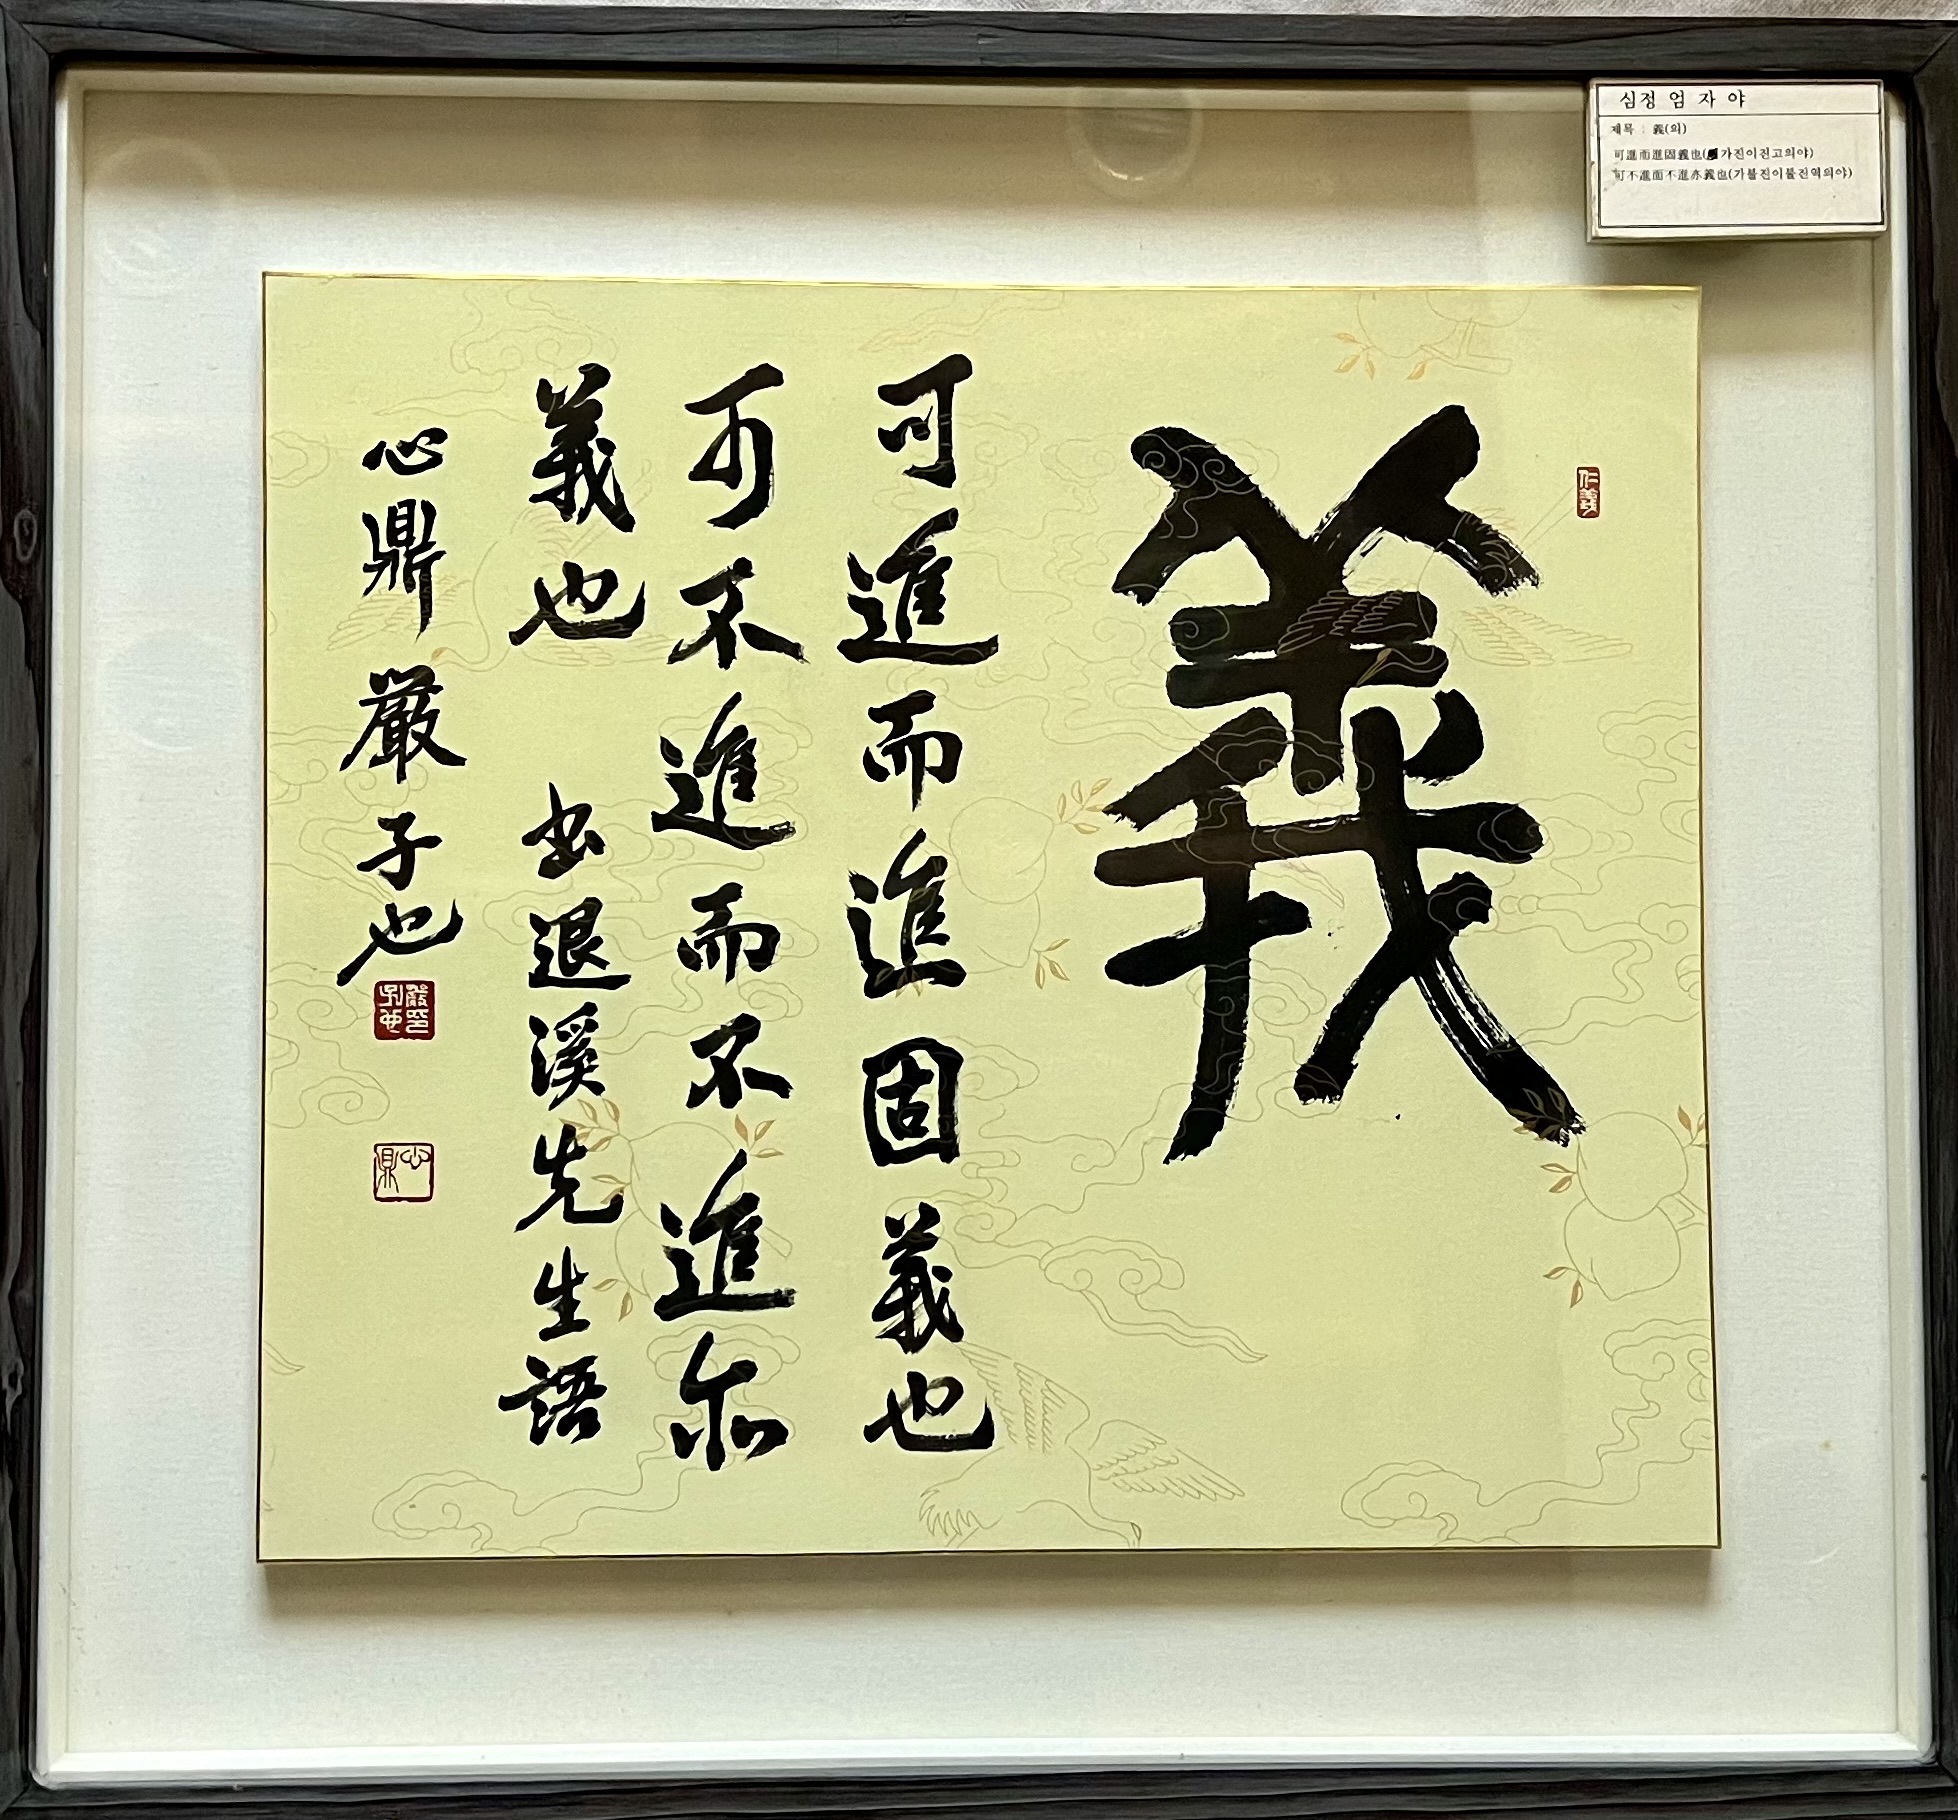 심정 엄 자 야
제목 : 義(의)
可進而進固義也(가진이진고의야)
可不進而不進亦義也(가불진이불진역의야)
仁義
義
可進而進固義也
可不進而不進亦
義也 書退溪先生語
心鼎 嚴子也
嚴子也印
心鼎